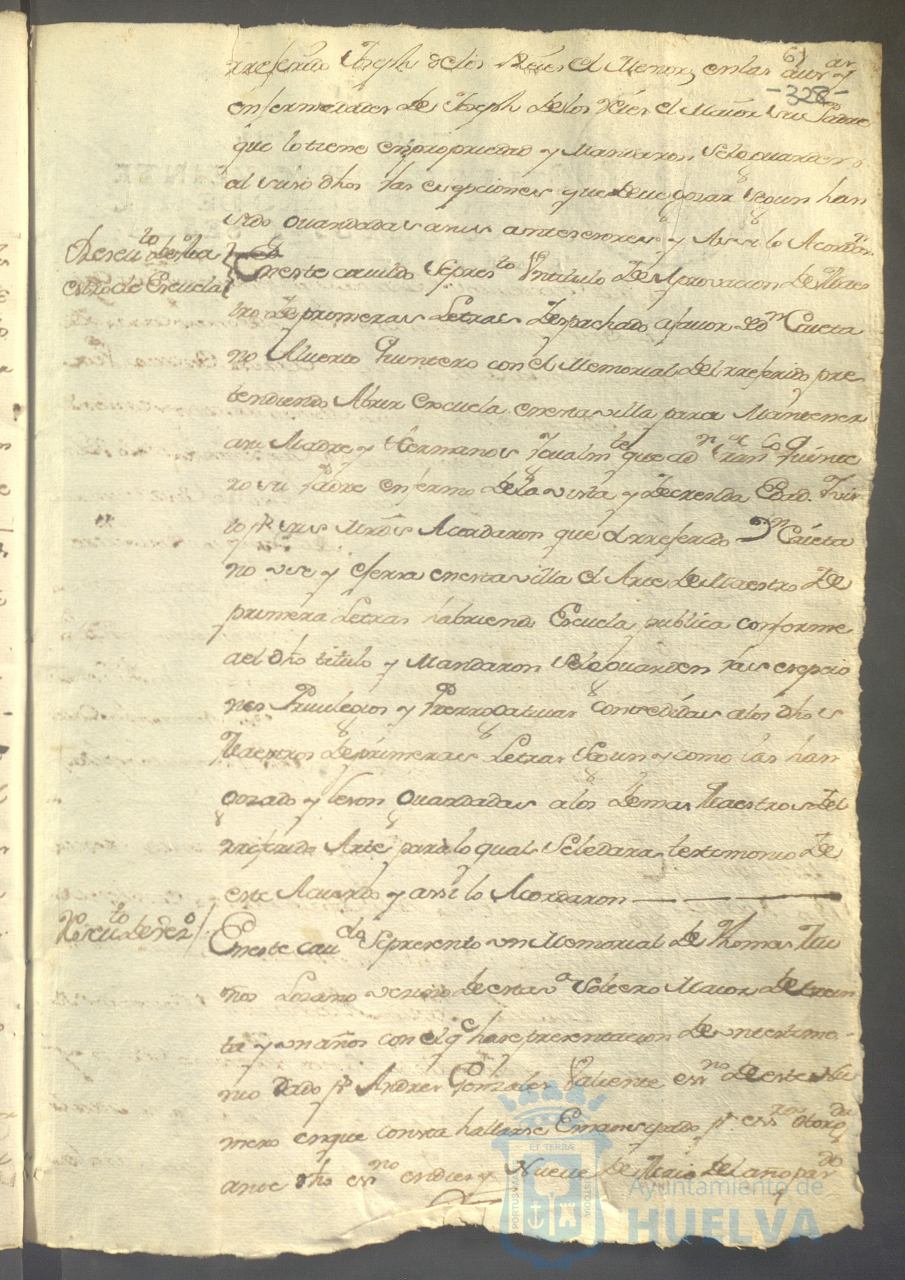 61
-328-
rreferido Joseph de los Reies el Menor, en las aus.as y
enfermedades de Joseph de los Reies el Maior su Padre
que lo tiene en propriedad y Mandaron se le guarden
al suso dho las esepciones que deue gozar segun han
sido guardadas a sus antesesores y Assi lo Acordaron
Reseuto. de Ma
estro de Escuela
En este cauildo se presto. Un titulo de Aprouacion de Maes
tro de primeras Letras despachado a fauor de Dn Caieta
no Aluerto Quintero con el Memorial del rreferido pre
tendiendo Abrir escuela en esta villa para Mantener
a su Madre y Hermanos Igualmte. que a dn Franco Quinte
ro su Padre enfermo de la vista y
to pr sus Mrds Acordaron que el rreferido Dn Caieta
no vse y esersa en esta villa el Arte de Maestro de
primera Letras habriendo Escuela publica conforme
a el dho titulo y Mandaron se le guarden las esepcio
nes Priuilegios y Prerrogatiuas Consedidas a los dhos
Maestros de primeras Letras segun y como las han
gozado y
guardadas a los demas Maestros del
rreferido Arte para lo qual se le dara testimonio de
este Acuerdo y assi lo Acordaron
En este caudo se presento un Memorial de Thomas Mu
ños Lozano vesino de esta va Soltero Maior de trein
ta y un años con el qe hase presentacion de un testimo-
nio dado pr Andres Gonzales Valiente essno de este Nu
mero en que consta hallarse Emansipado pr
dho essno en dies y Nueue de Maio del año pasdo
PORTUS MARIS
ET TERRAE
CUSTODIA
Ayuntamiento de
HUELVA